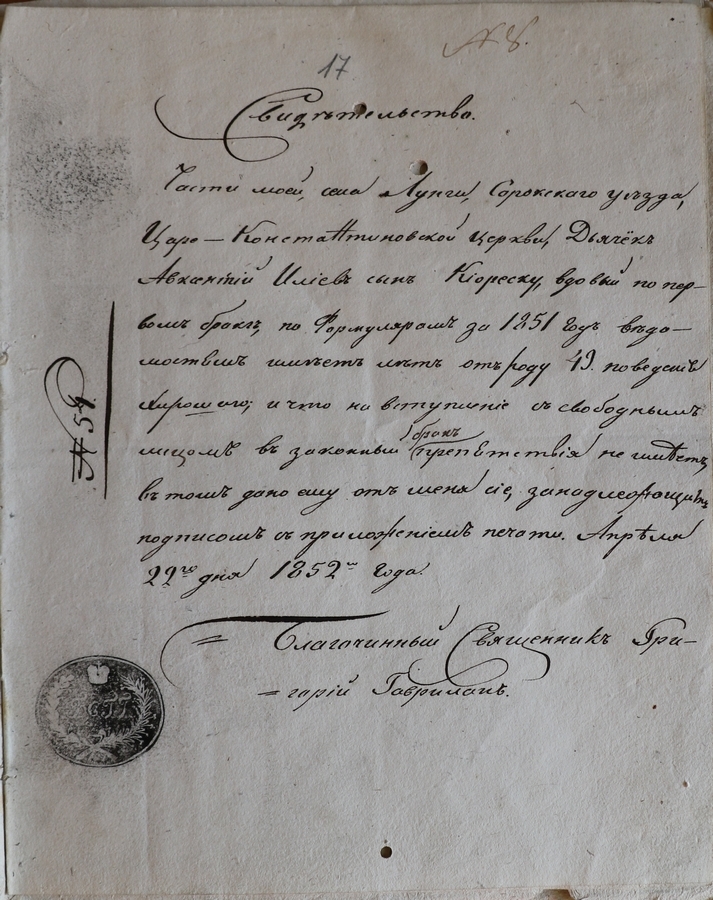 17
N 8.
Свидѣтельство.
Части моей, села Лунги, Сорокскаго уѣзда,
Царе-Константиновской церкви, Дьячёкъ
Авксентій Иліевъ сынъ Кіореску, вдовый по пер-
вомъ бракѣ, по Формулярамъ за 1851 годъ вѣдо-
мостямъ имѣетъ лѣтъ отъ роду 49. поведенія
хорошаго; и что на вступленіе съ свободнымъ
лицомъ въ законный бракъ препятствія не имѣетъ,
въ томъ дано ему отъ меня сіе, занадлежащимъ
подписомъ съ приложеніемъ печати. Апрѣля
22го дня 1852го года.
Благочинный Священникъ Гри-
горій Гаврилащъ.
N 54